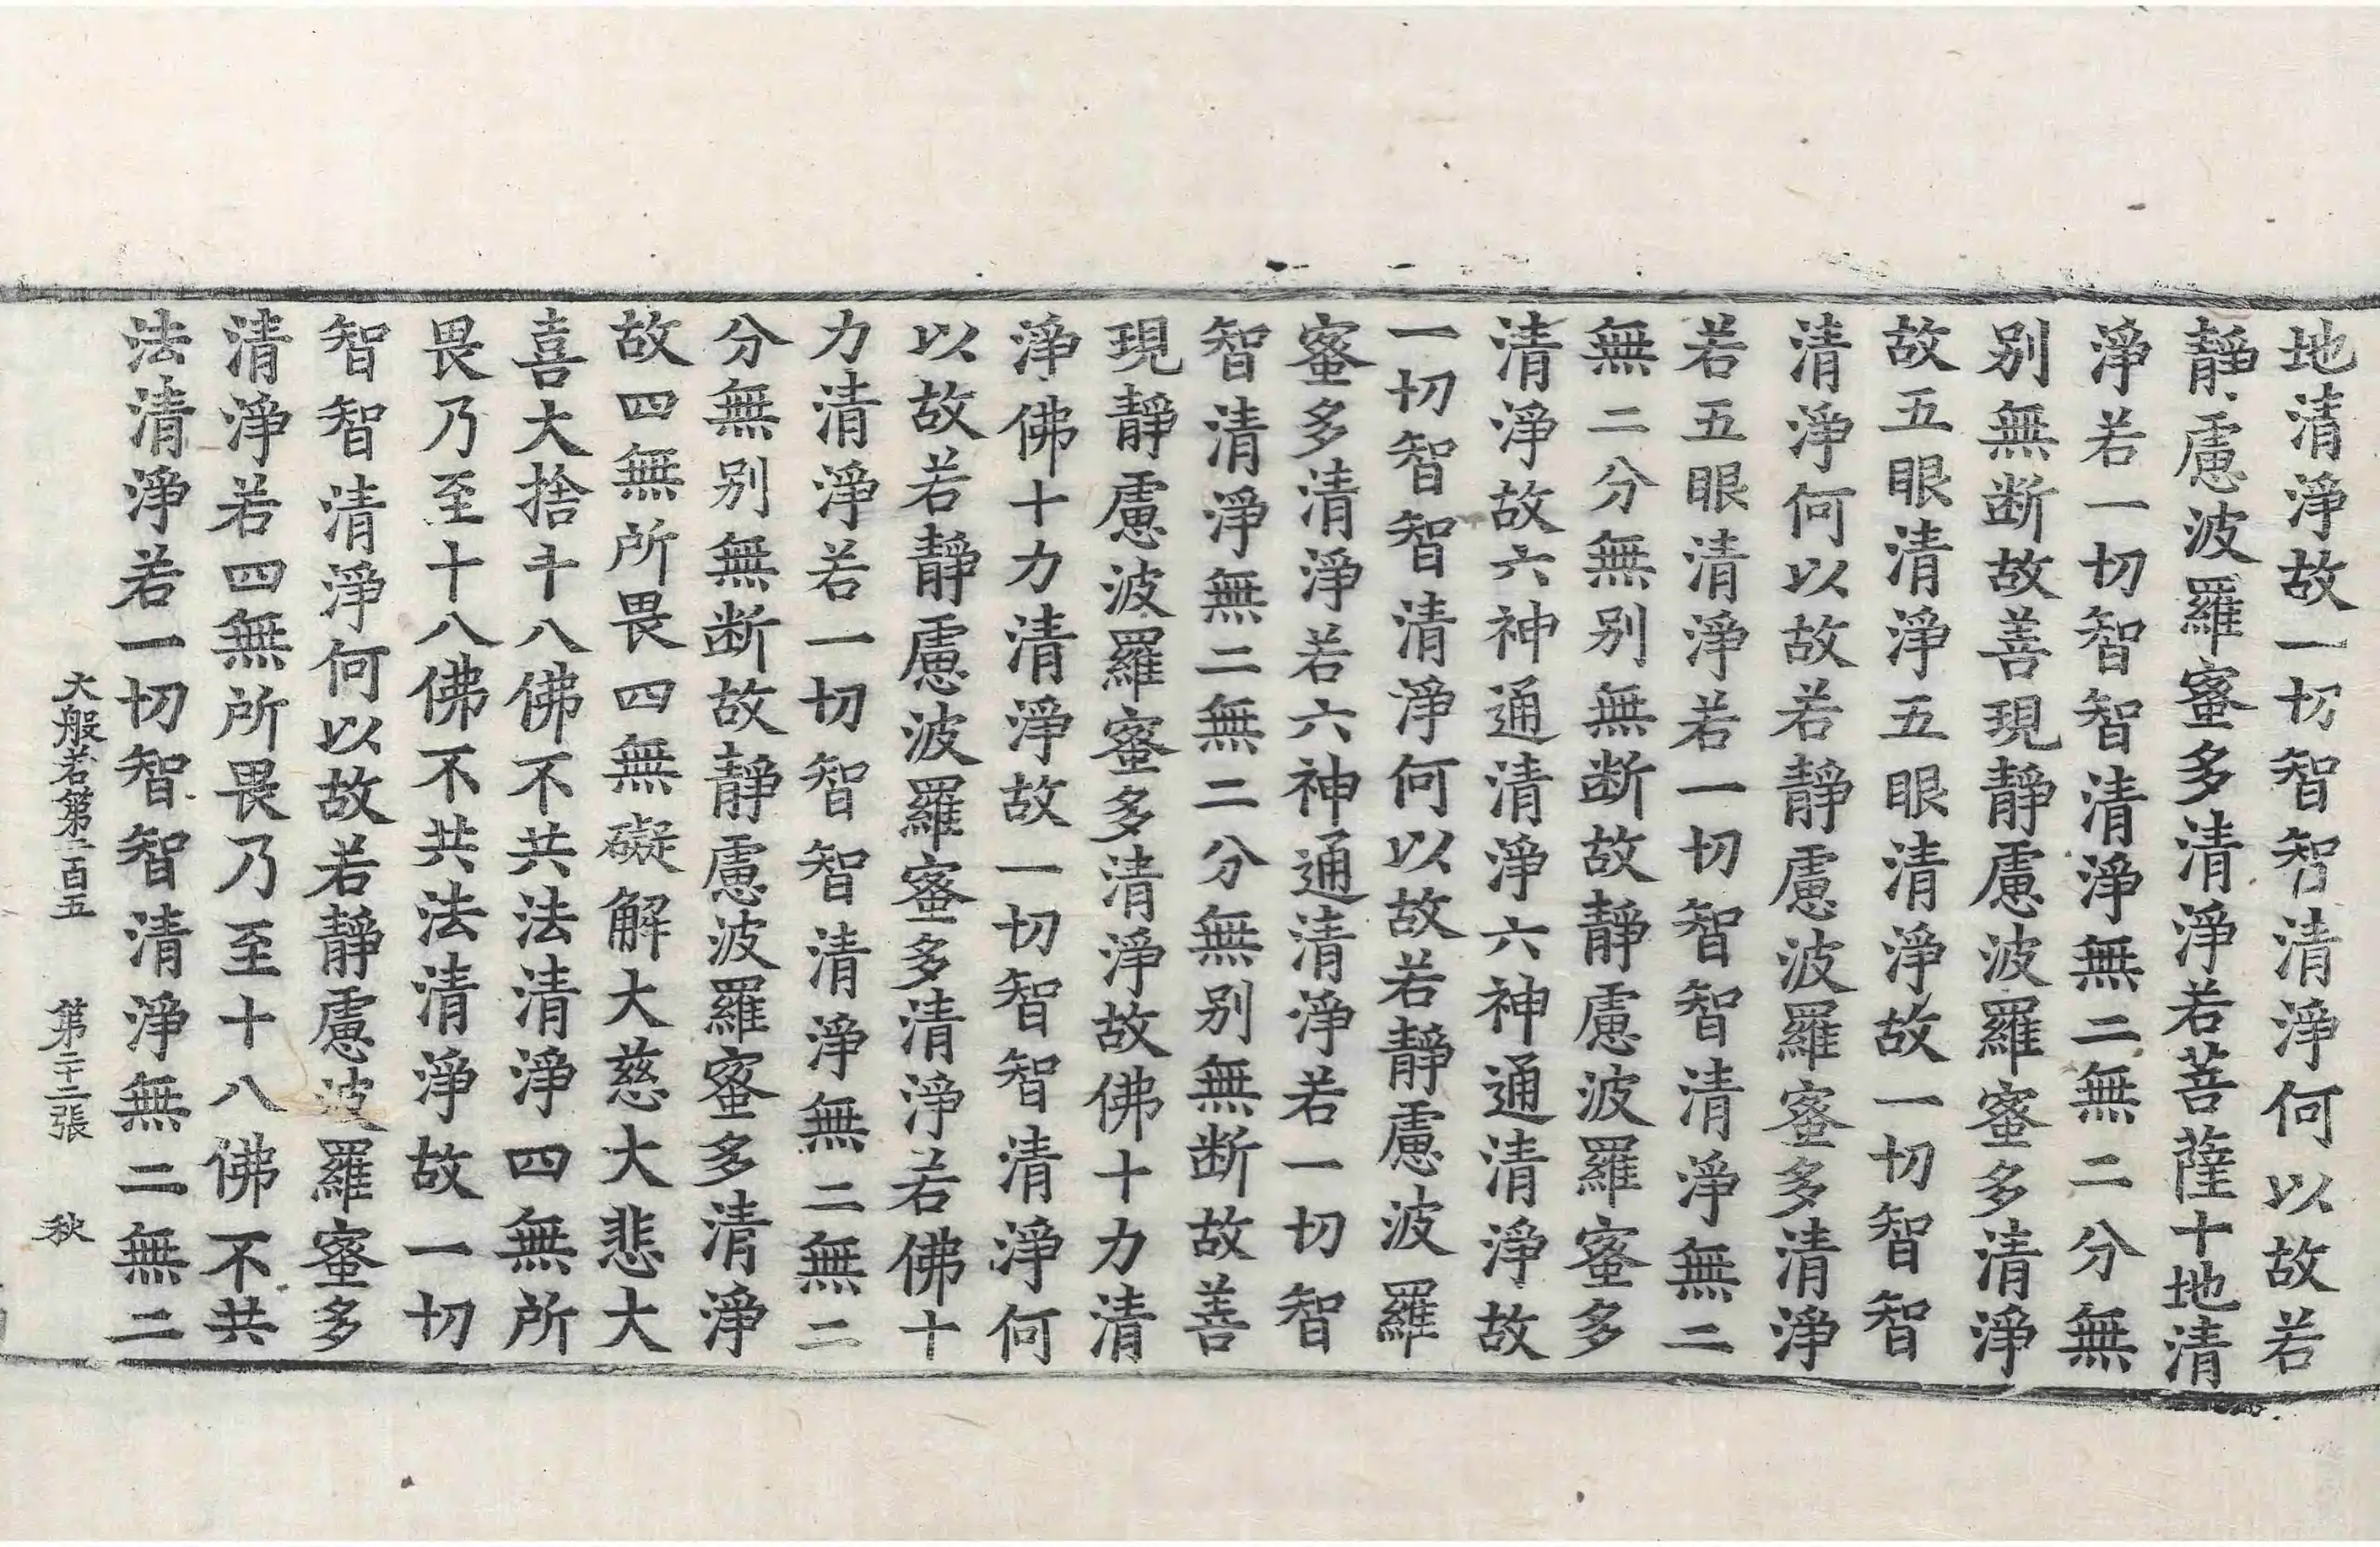 地清淨故一切智智清淨何以故若
靜慮波羅蜜多清淨若菩薩十地清
淨若一切智智清淨無二無二分無
別無断故善現靜慮波羅蜜多清淨
故五眼清淨五眼清淨故一切智智
清淨何以故若靜慮波羅蜜多清淨
若五眼清淨若一切智智清淨無二
無二分無別無断故靜慮波羅蜜多
清淨故六神通清淨六神通清淨故
一切智智清淨何以故若靜慮波羅
蜜多清淨若六神通清淨若一切智
智清淨無二無二分無別無断故善
現靜慮波羅蜜多清淨故佛十力清
淨佛十力清淨故一切智智清淨何
以故若靜慮波羅蜜多清淨若佛十
力清淨若一切智智清淨無二無二
分無別無断故靜慮波羅蜜多清淨
故四無所畏四無礙解大慈大悲大
喜大捨十八佛不共法清淨四無所
畏乃至十八佛不共法清淨故一切
智智清淨何以故若靜慮波羅蜜多
清淨若四無所畏乃至十八佛不共
法清淨若一切智智清淨無二無二
大般若第二百五 第二十二張 秋